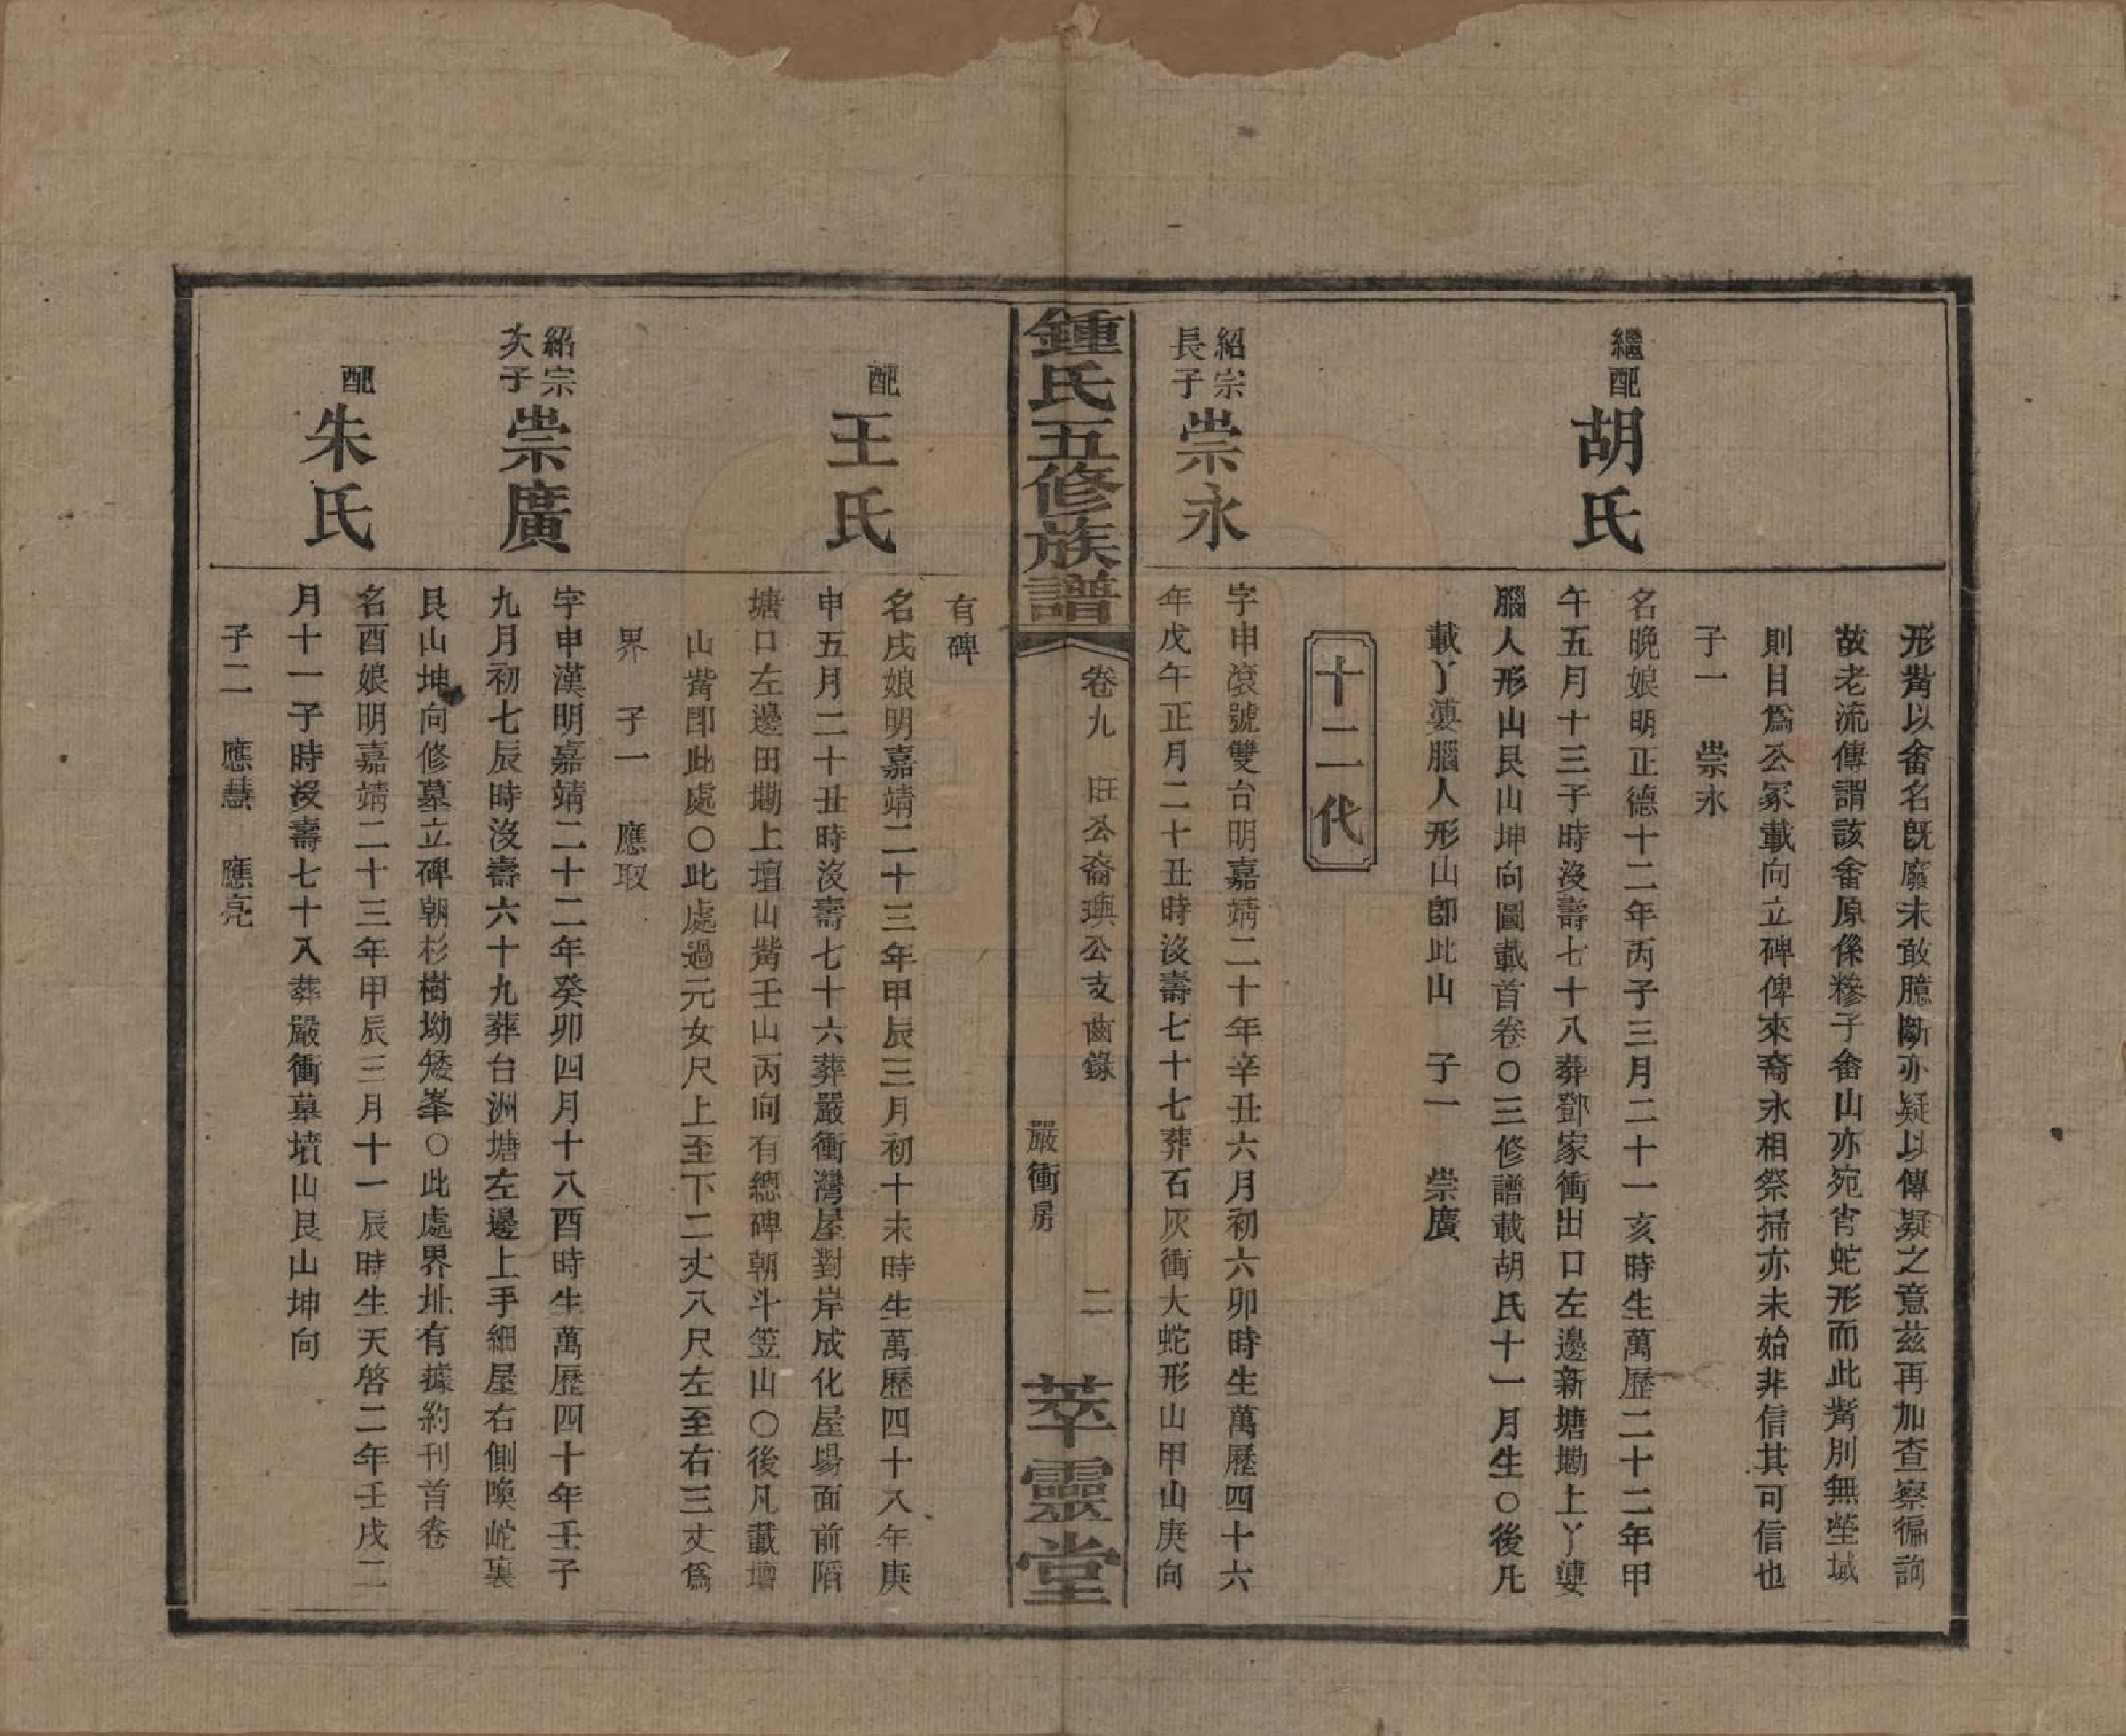 形觜以畲名旣廢未敢臆斷亦疑以傳疑之意茲再加查察徧詢
故老流傳謂該畲原係糝子畲山亦宛肖蛇形而此觜別無塋域
則目爲公冢載向立碑俾來裔永相祭掃亦未始非信其可信也
子一　崇永
繼配
胡氏
名晚娘明正德十二年丙子三月二十一亥時生萬歷二十二年甲
午五月十三子時沒壽七十八葬鄧家衝出口左邊新塘墈上丫䔖
腦人形山艮山坤向圖載首卷○三修譜載胡氏十一月生○後凡
載丫䔖腦人形山卽此山　子一　崇廣
十二代
紹宗
長子
崇永
字申滾號雙台明嘉靖二十年辛丑六月初六卯時生萬歷四十六
年戊午正月二十丑時沒壽七十七葬石灰衝大蛇形山甲山庚向
鍾氏五修族譜
卷九　旺公裔璵公支齒錄
嚴衝房
二
萃靈堂
有碑
配
王氏
名戌娘明嘉靖二十三年甲辰三月初十未時生萬歷四十八年庚
申五月二十丑時沒壽七十六葬嚴衝灣屋對岸成化屋場面前䧟
塘口左邊田墈上壇山觜壬山丙向有總碑朝斗笠山○後凡載壇
山觜卽此處○此處過元女尺上至下二丈八尺左至右三丈爲
界　子一　應取
紹宗
次子
崇廣
字申漢明嘉靖二十二年癸卯四月十八酉時生萬歷四十年壬子
九月初七辰時沒壽六十九葬台洲塘左邊上手細屋右側喚岮裏
艮山坤向修墓立碑朝杉樹坳矮峯○此處界址有據約刊首卷
配
朱氏
名酉娘明嘉靖二十三年甲辰三月十一辰時生天啓二年壬戌二
月十一子時沒壽七十八葬嚴衝墓墳山艮山坤向
子二　應慧　應亮